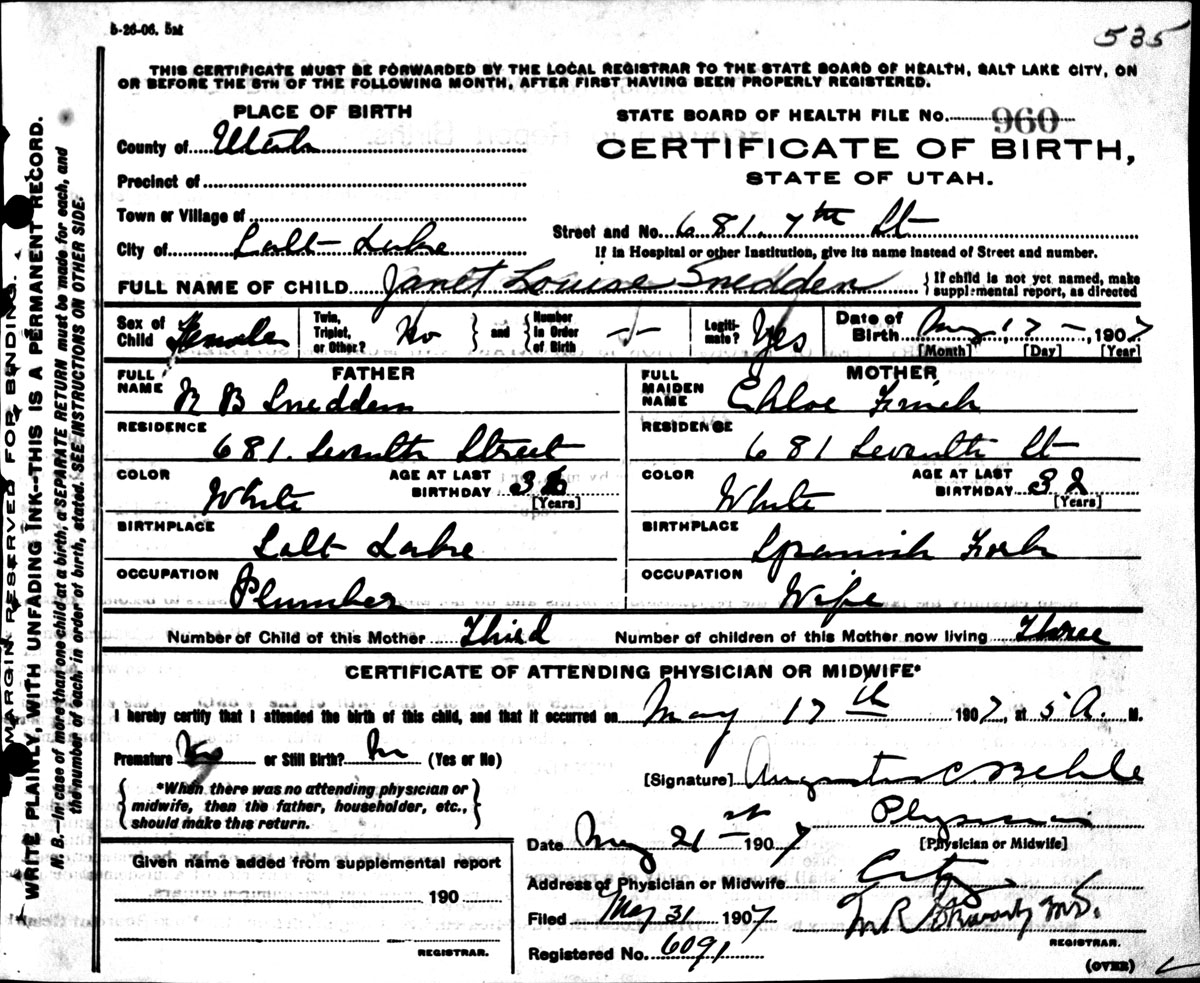 5-26-06. 5M
535
THIS CERTIFICATE MUST BE FORWARDED BY THE LOCAL REGISTRAR TO THE STATE BOARD OF HEALTH, SALT LAKE CITY, ON
OR BEFORE THE 5TH OF THE FOLLOWING MONTH, AFTER FIRST HAVING BEEN PROPERLY REGISTERED.
PLACE OF BIRTH
STATE BOARD OF HEALTH FILE No. 960
County of Utah
CERTIFICATE OF BIRTH,
STATE OF UTAH.
Precinct of
Town or Village of
Street and No. 681. 7th St
City of Salt Lake
If in Hospital or other Institution, give its name instead of Street and number.
FULL NAME OF CHILD Janet Louise Snedden
{If child is not yet named, make
supplemental report, as directed
Sex of Child Female
Twin, Triplet, or Other? No } and { Number in Order of Birth
Legiti-mate? Yes
Date of Birth May 17 1907
[Month] [Day] [Year]
FATHER
FULL NAME N B Snedden
RESIDENCE
681. Seventh Street
COLOR White
AGE AT LAST BIRTHDAY
[Years]
BIRTHPLACE
Salt Lake
OCCUPATION
Plumber
MOTHER
FULL MAIDEN NAME Chloe Finch
RESIDENCE
681 Seventh St
COLOR White
AGE AT LAST BIRTHDAY 32
[Years]
BIRTHPLACE
Spanish Fork
OCCUPATION
Wife
Number of Child of this Mother Third
Number of children of this Mother now living Three
CERTIFICATE OF ATTENDING PHYSICIAN OR MIDWIFE*
I hereby certify that I attended the birth of this child, and that it occurred on May 17th 1907, at 5 A. M.
Premature No or Still Birth? No (Yes or No)
{ *When there was no attending physician or
midwife, then the father, householder, etc.,
should make this return. }
[Signature] Augustus C Behle
Physician
[Physician or Midwife]
Date May 21st 1907
Address of Physician or Midwife City
Filed May 31 1907
REGISTRAR.
Registered No. 6091
(OVER)
Given name added from supplemental report
190
REGISTRAR.
MARGIN RESERVED FOR BENDING.
WRITE PLAINLY, WITH UNFADING INK--THIS IS A PERMANENT RECORD.
N. B.--In case of more than one child at a birth, a SEPARATE RETURN must be made for each, and
the number of each, in order of birth, stated. SEE INSTRUCTIONS ON OTHER SIDE.